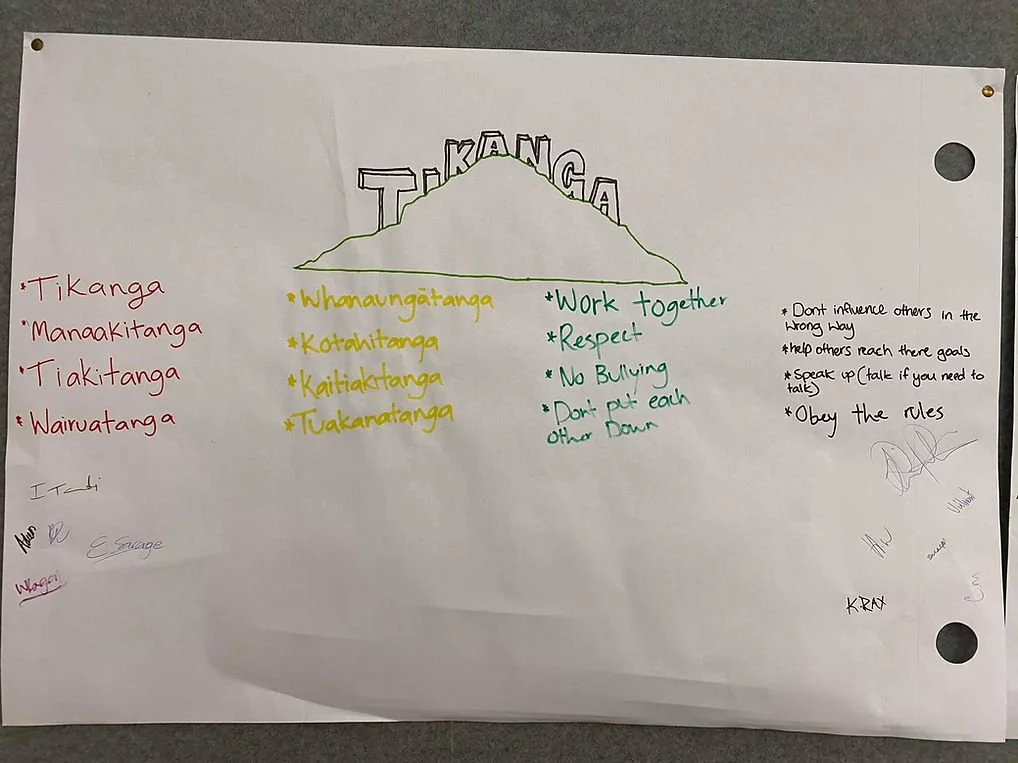 TIKANGA
*Tikanga
*Manaakitanga
*Tiakitanga
*Wairuatanga
*Whanaungātanga
*Kotahitanga
*Kaitiakitanga
*Tuakanatanga
*Work together
*Respect
*No Bullying
*Dont put each
other Down
*Dont influence others in the
Wrong Way
*help others reach there goals
*Speak up (talk if you need to
talk)
*Obey the rules
E.Savage
K.RAX